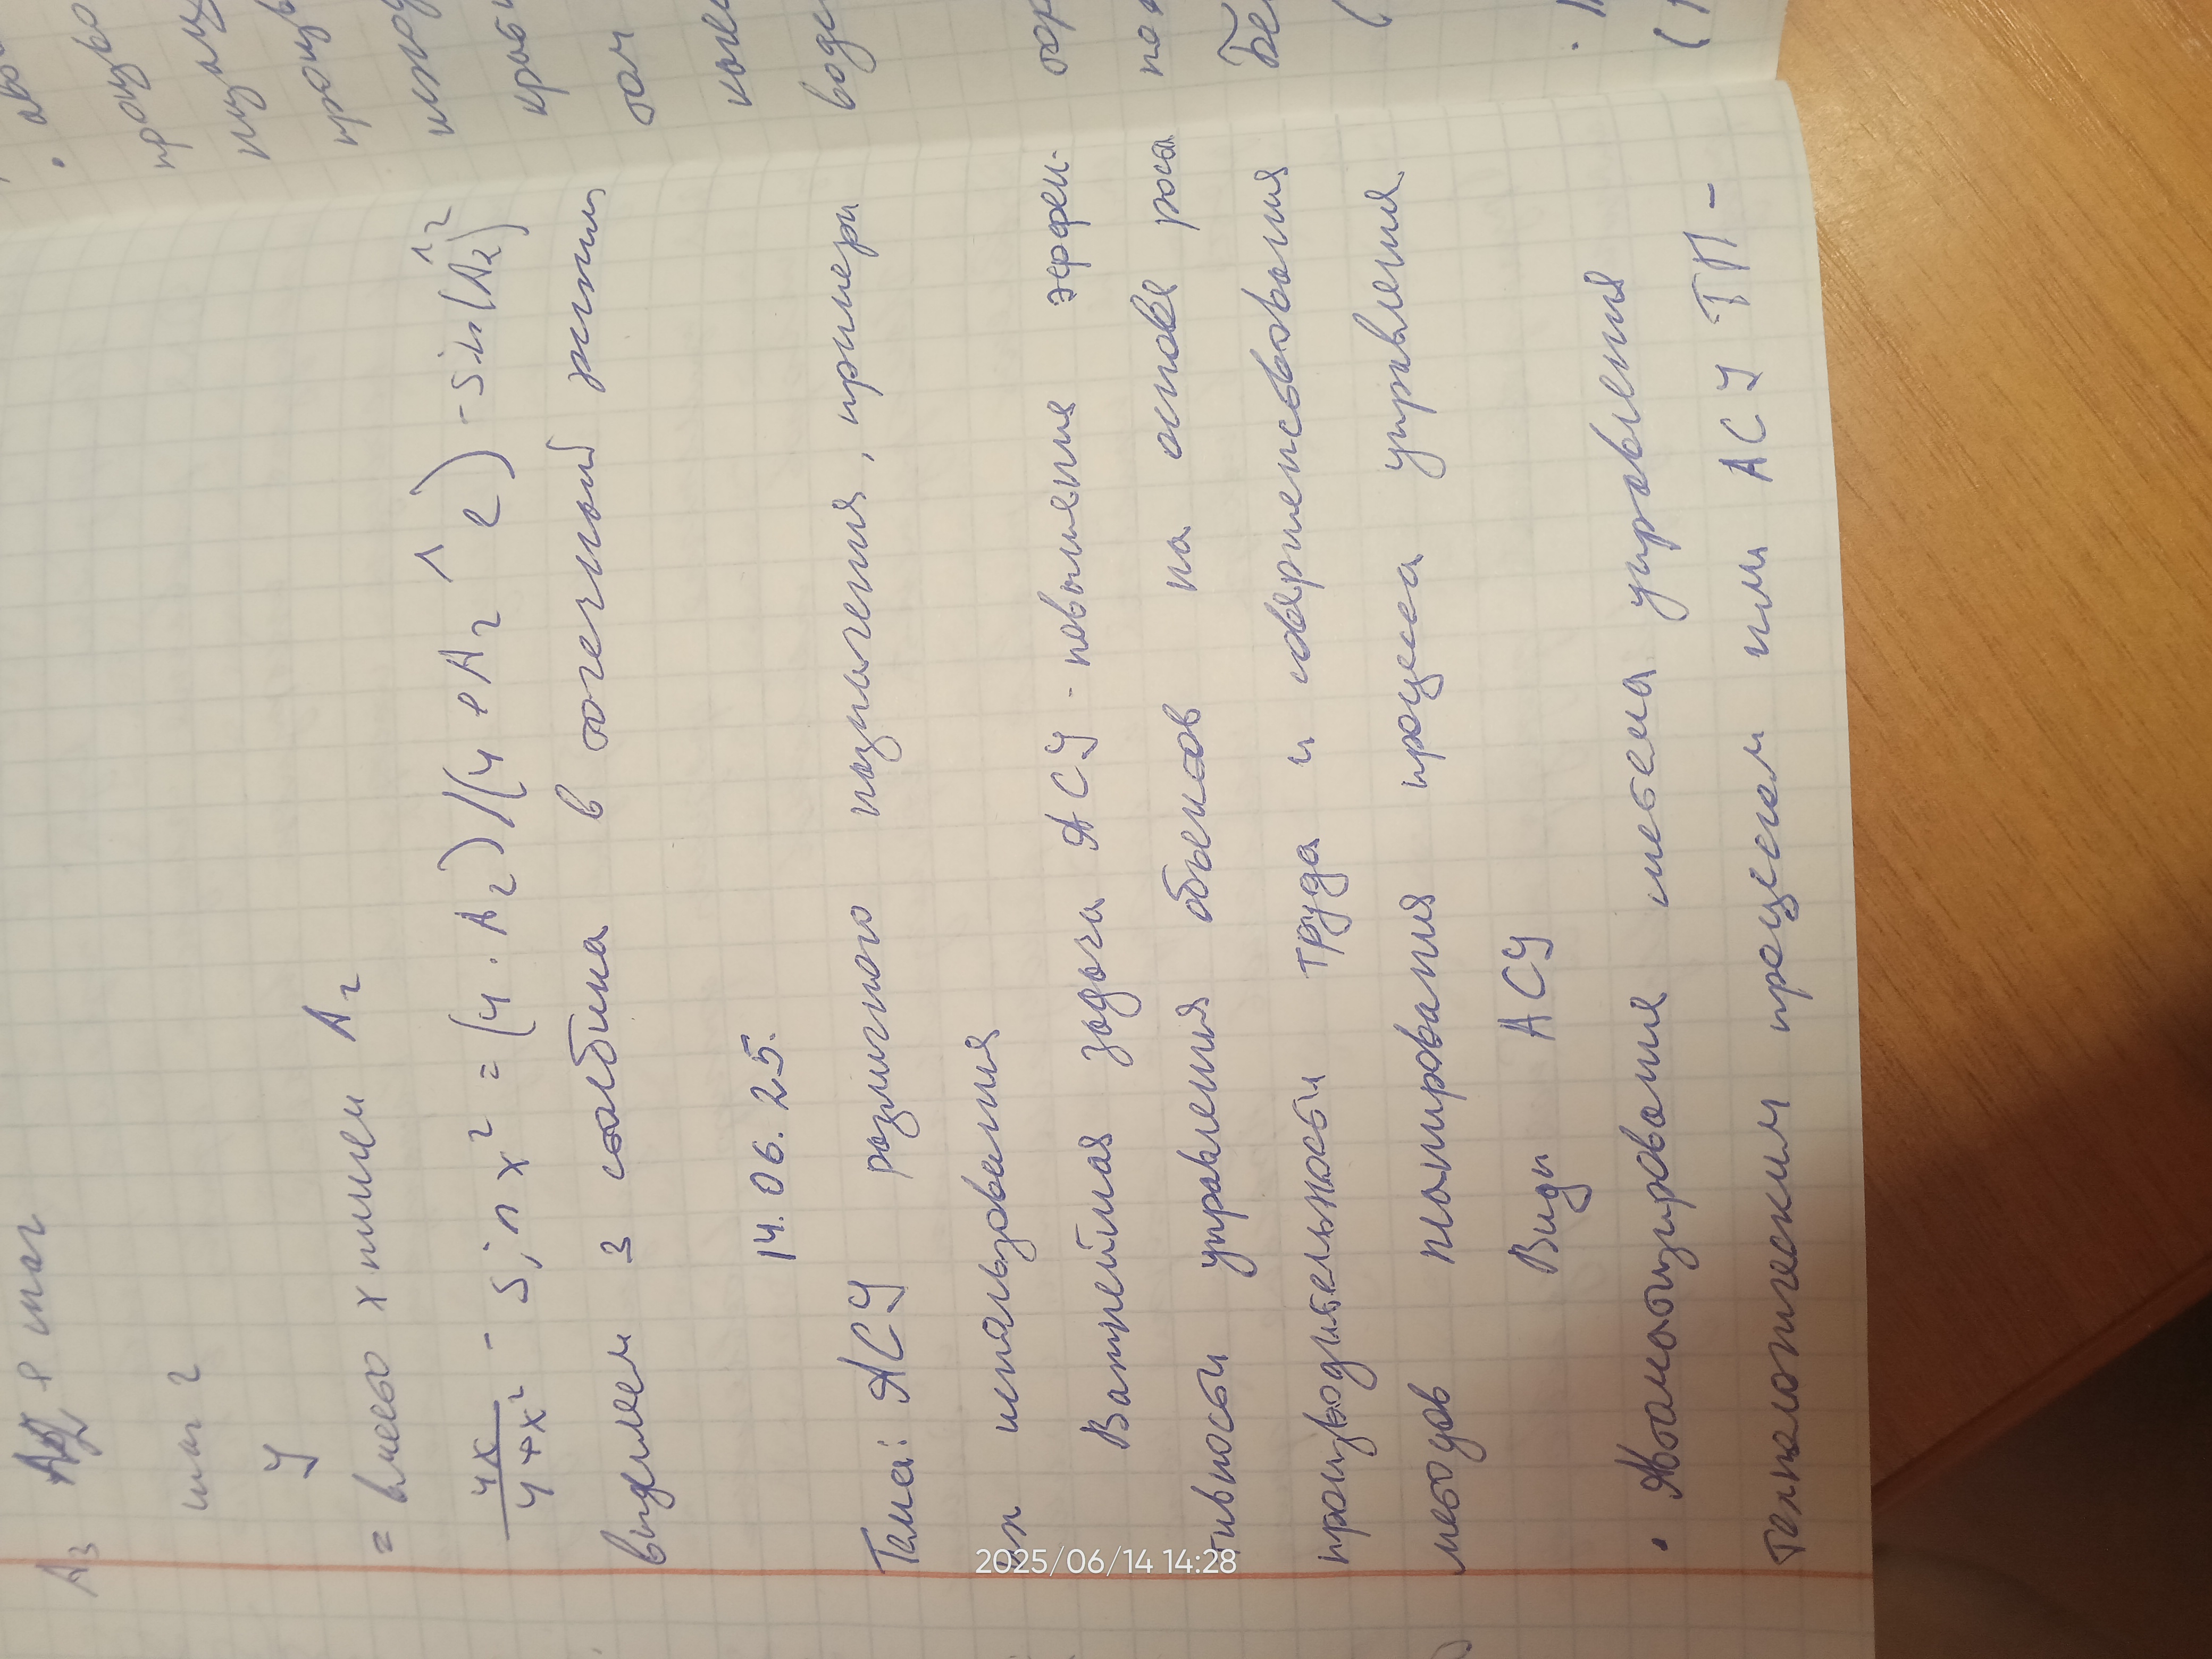 A3 A2 + шаг
шаг 2
y
= вместо x пишем A2
4x/4+x² - sin x² = (4 · A2)/(4 + A2 ^ 2) - sin(A2)^2
выделем 3 столбика в точечный
14.06.25.
Тема: АСУ различного назначения, примеры
их использования
Важнейшая задача АСУ - повышения эффек-
тивности управления объектов на основе роста
производительности труда и совершенствования
методов планирования процесса управления.
Виды АСУ
• Автоматизирование система управления
технологическим процессом или АСУ ТП -
• авто
процес
процесс
крат
водс
2025/06/14 14:28